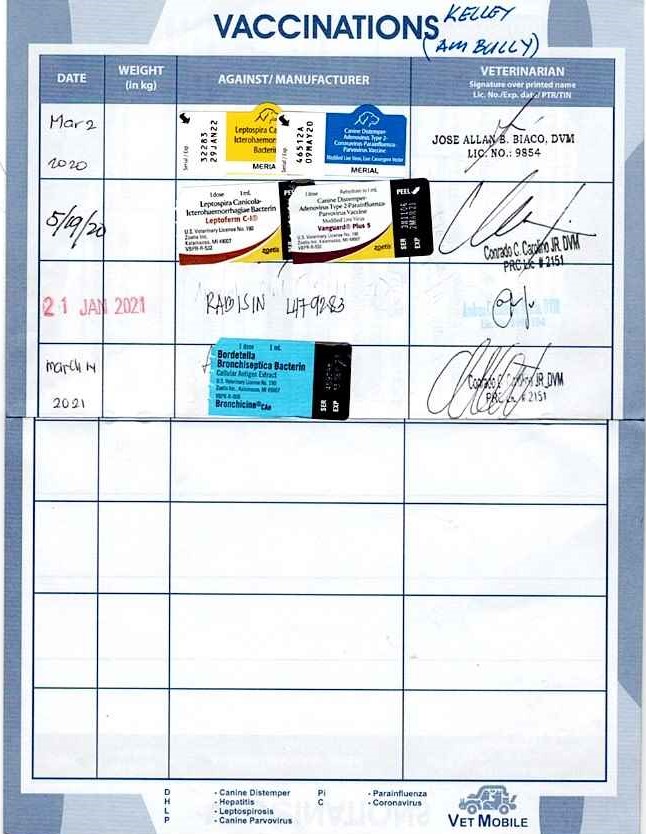 VACCINATIONS
KELLEY
(AM BULLY)
DATE
WEIGHT
(in kg)
AGAINST/ MANUFACTURER
VETERINARIAN
Signature over printed name
Lic. No./Exp. date/ PTR/TIN
Mar 2
2020
Serial / Exp.
32283
29JAN22
Leptospira Ca
Icterohaemor
Bacterin
MERIA
Serial / Exp.
66512A
09MAY20
Canine Distemper-
Adenovirus Type 2-
Coronavirus-Parainfluenza-
Parvovirus Vaccine
Modified Live Virus
MERIAL
JOSE ALLAN B. BIACO, DVM
LIC. NO.: 9854
5/09/20
1 dose 1 mL
Leptospira Canicola-
Icterohaemorrhagiae Bacterin
Leptoferm C-I®
U.S. Veterinary License No. 190
Zoetis Inc.
Kalamazoo, MI 49007
zoetis
PE
1 dose Rehydrate to 1 mL
Canine Distemper-
Adenovirus Type 2-Parainfluenza-
Parvovirus Vaccine
Modified Live Virus
Vanguard® Plus 5
U.S. Veterinary License No. 190
Zoetis Inc.
Kalamazoo, MI 49007
zoetis
PEEL
SER
EXP
Conrado C. Carolino JR. DVM
PRC Lic # 2151
21 JAN 2021
RABISIN
March 14
2021
1 dose 1 mL
Bordetella
Bronchiseptica Bacterin
Cellular Antigen Extract
U.S. Veterinary License No. 190
Zoetis Inc., Kalamazoo, MI 49007
Bronchicine® CAe
SER
EXP
JR. DVM
# 2151
D - Canine Distemper Pi - Parainfluenza
H - Hepatitis C - Coronavirus
L - Leptospirosis
P - Canine Parvovirus
VET MOBILE